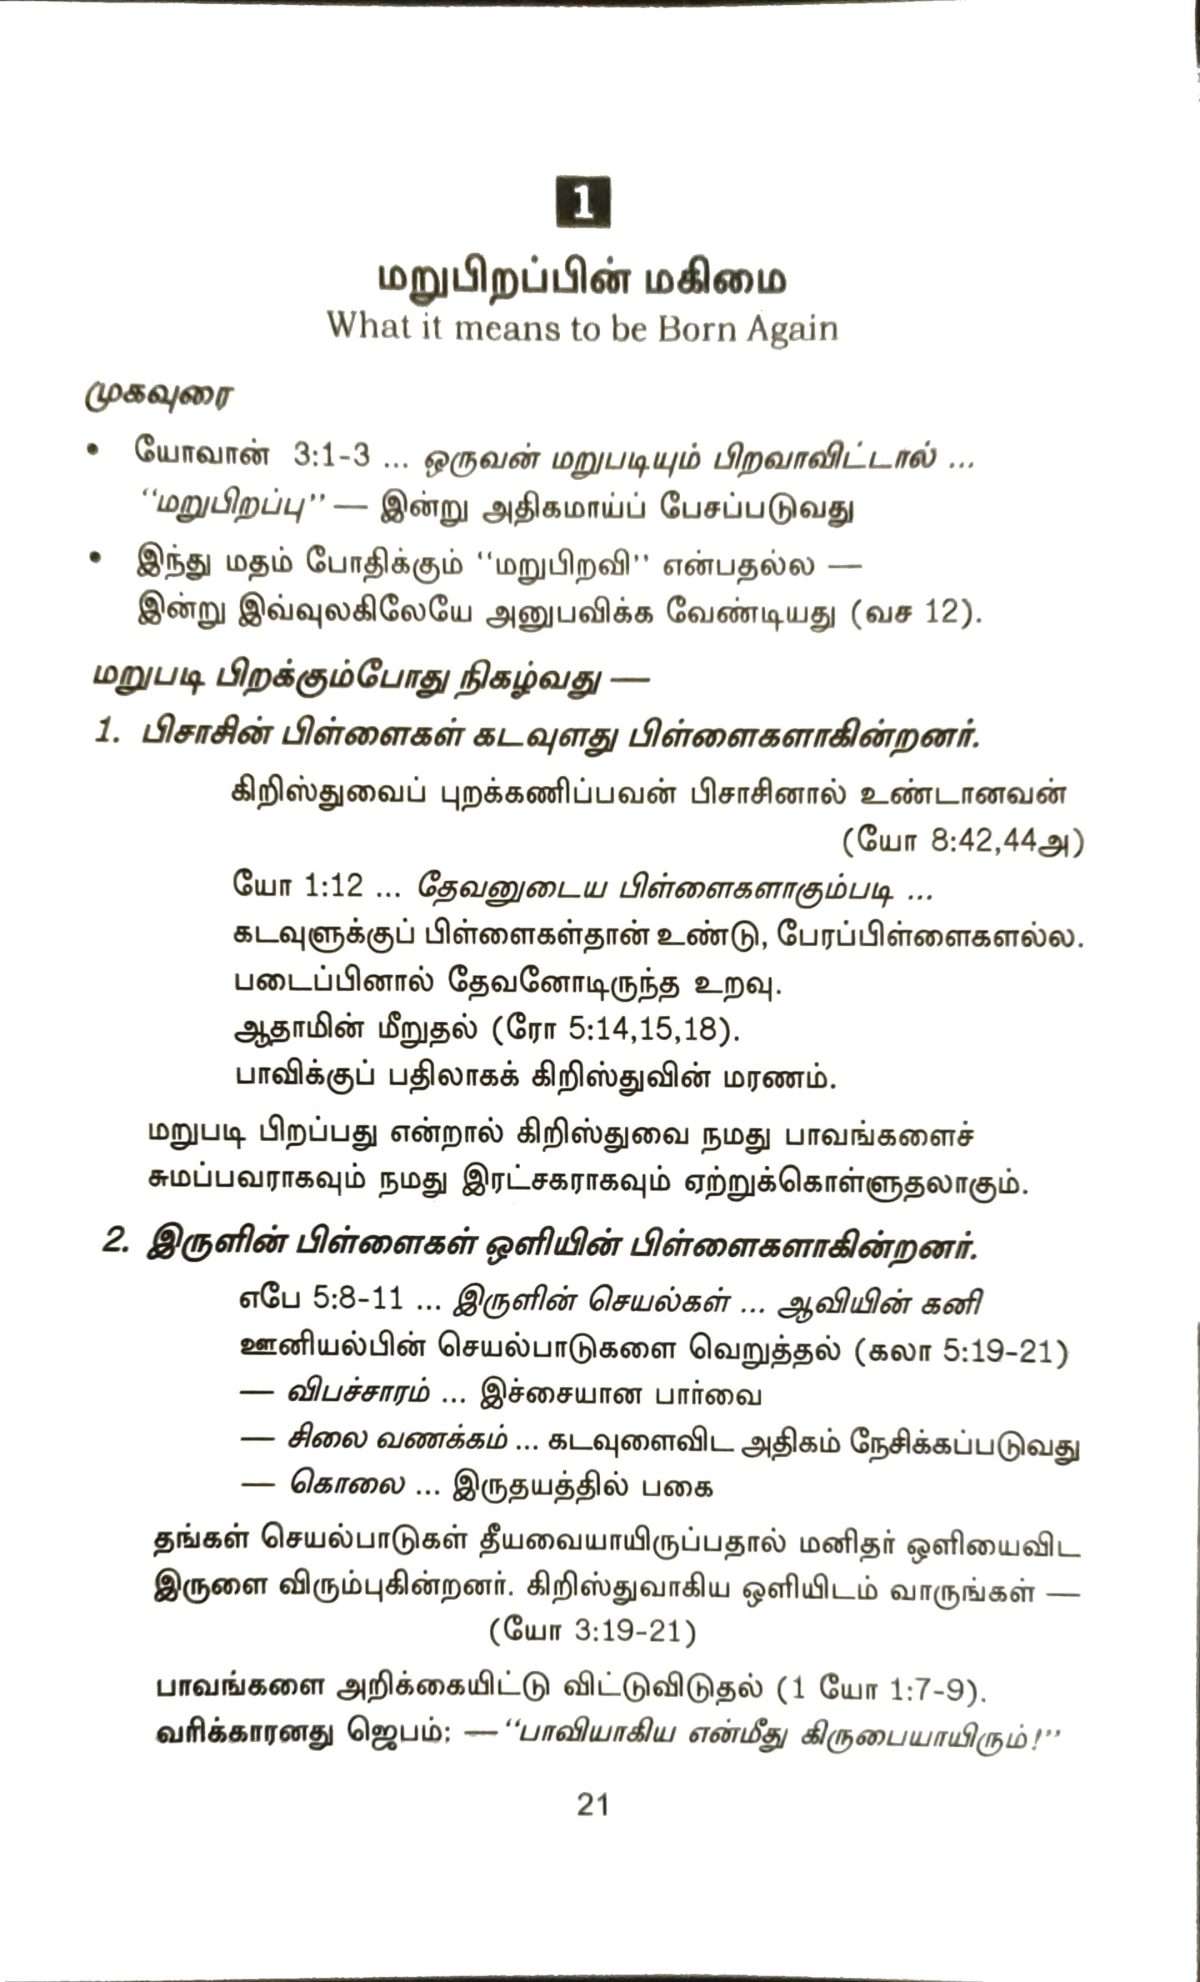 1
மறுபிறப்பின் மகிமை
What it means to be Born Again
முகவுரை
• யோவான் 3:1-3 ... ஒருவன் மறுபடியும் பிறவாவிட்டால் ...
“மறுபிறப்பு” — இன்று அதிகமாய்ப் பேசப்படுவது
• இந்து மதம் போதிக்கும் “மறுபிறவி” என்பதல்ல —
இன்று இவ்வுலகிலேயே அனுபவிக்க வேண்டியது (வச 12).
மறுபடி பிறக்கும்போது நிகழ்வது —
1. பிசாசின் பிள்ளைகள் கடவுளது பிள்ளைகளாகின்றனர்.
கிறிஸ்துவைப் புறக்கணிப்பவன் பிசாசினால் உண்டானவன்
(யோ 8:42,44அ)
யோ 1:12 ... தேவனுடைய பிள்ளைகளாகும்படி ...
கடவுளுக்குப் பிள்ளைகள்தான் உண்டு, பேரப்பிள்ளைகளல்ல.
படைப்பினால் தேவனோடிருந்த உறவு.
ஆதாமின் மீறுதல் (ரோ 5:14,15,18).
பாவிக்குப் பதிலாகக் கிறிஸ்துவின் மரணம்.
மறுபடி பிறப்பது என்றால் கிறிஸ்துவை நமது பாவங்களைச்
சுமப்பவராகவும் நமது இரட்சகராகவும் ஏற்றுக்கொள்ளுதலாகும்.
2. இருளின் பிள்ளைகள் ஒளியின் பிள்ளைகளாகின்றனர்.
எபே 5:8-11 ... இருளின் செயல்கள் ... ஆவியின் கனி
ஊனியல்பின் செயல்பாடுகளை வெறுத்தல் (கலா 5:19-21)
— விபச்சாரம் ... இச்சையான பார்வை
— சிலை வணக்கம் ... கடவுளைவிட அதிகம் நேசிக்கப்படுவது
— கொலை ... இருதயத்தில் பகை
தங்கள் செயல்பாடுகள் தீயவையாயிருப்பதால் மனிதர் ஒளியைவிட
இருளை விரும்புகின்றனர். கிறிஸ்துவாகிய ஒளியிடம் வாருங்கள் —
(யோ 3:19-21)
பாவங்களை அறிக்கையிட்டு விட்டுவிடுதல் (1 யோ 1:7-9).
வரிக்காரனது ஜெபம்: — “பாவியாகிய என்மீது கிருபையாயிரும்!”
21